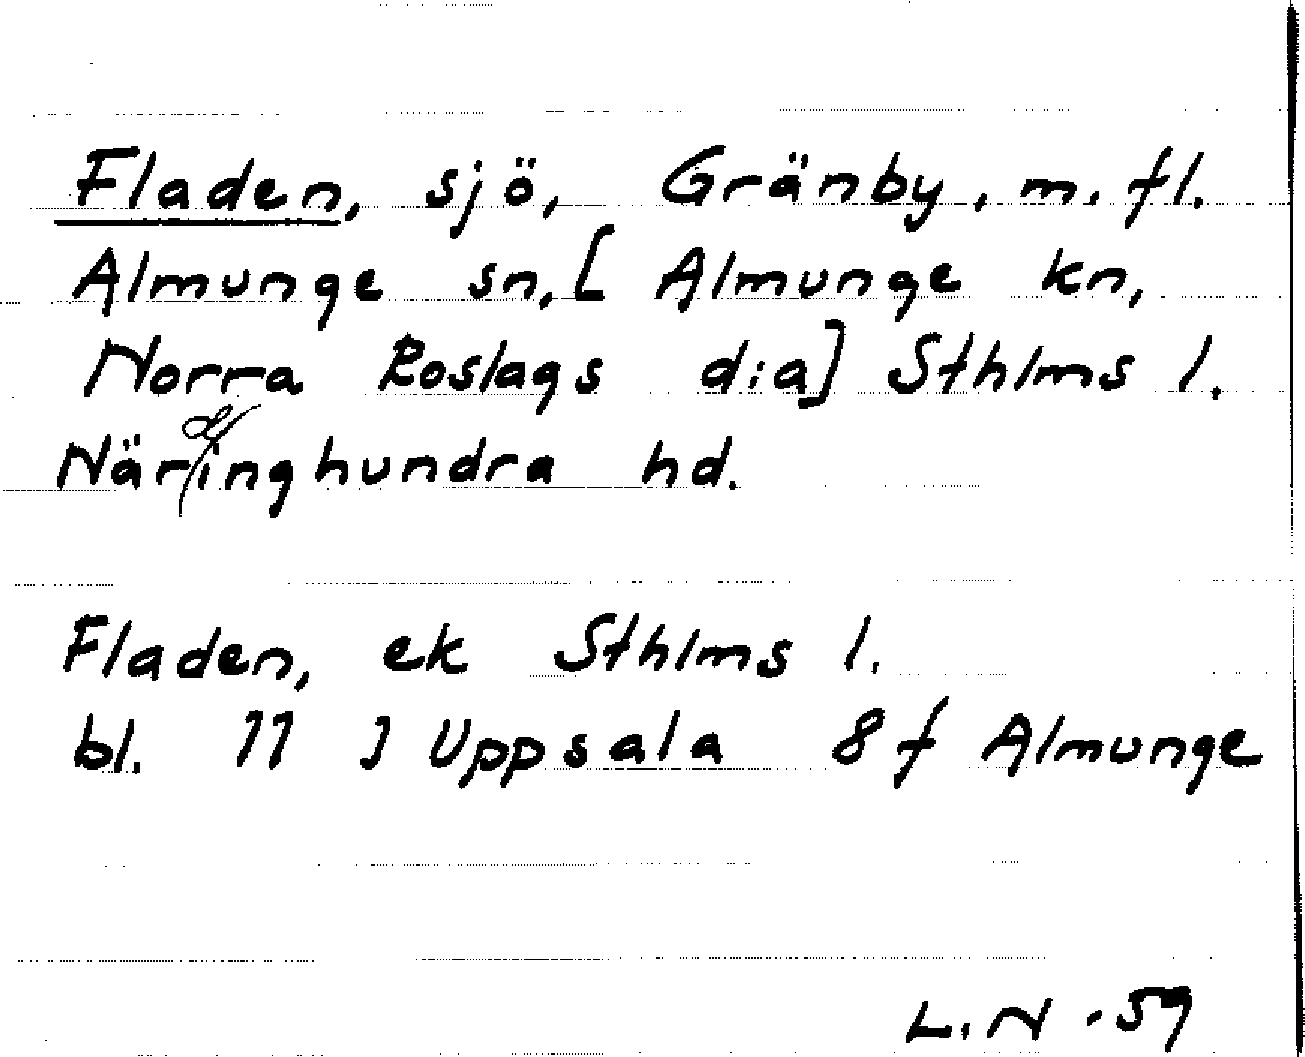 Fladen, sjö, Gränby, m. fl.
Almunge sn, [Almunge kn,
Norra Roslags d:a] Sthlms l.
Närdinghundra hd.
Fladen, ek Sthlms l.
bl. 11 J Uppsala 8f Almunge
L.N -59